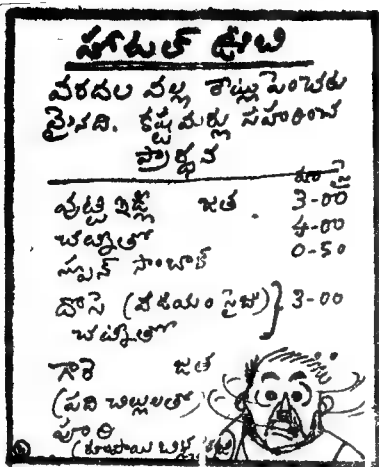 హోటల్ ఊటి
వరదల వల్ల రేట్లు పెంచబడు
మైనది. కష్టమర్లు సహరించ
ప్రార్థన
రూ పై
వుట్టి ఇడ్లీ జత 3-00
చట్నీతో 4-00
స్పూన్ సాంబార్ 0-50
దోసె (వడియం సైజు) 3-00
చట్నీతో
గారె జత
(పది చిల్లులతో)
పూరి
(రూపాయి బిళ్ళ